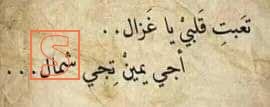 تعبت قلبيْ يا غَزال..
أجي يمينْ تِجي شمال...